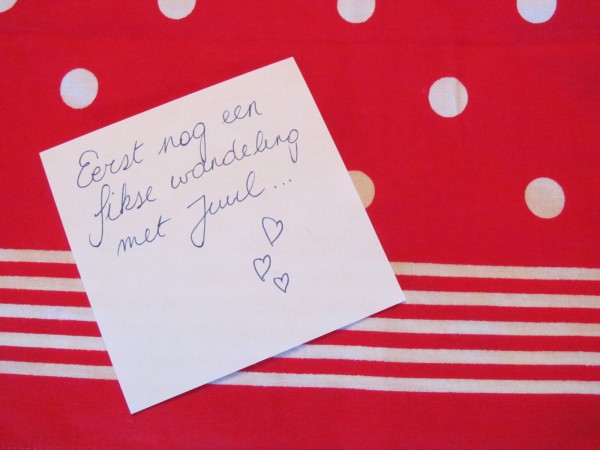 Eerst nog een
fikse wandeling
met Juul...